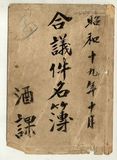 昭和十九年十月
合議件名簿
酒課